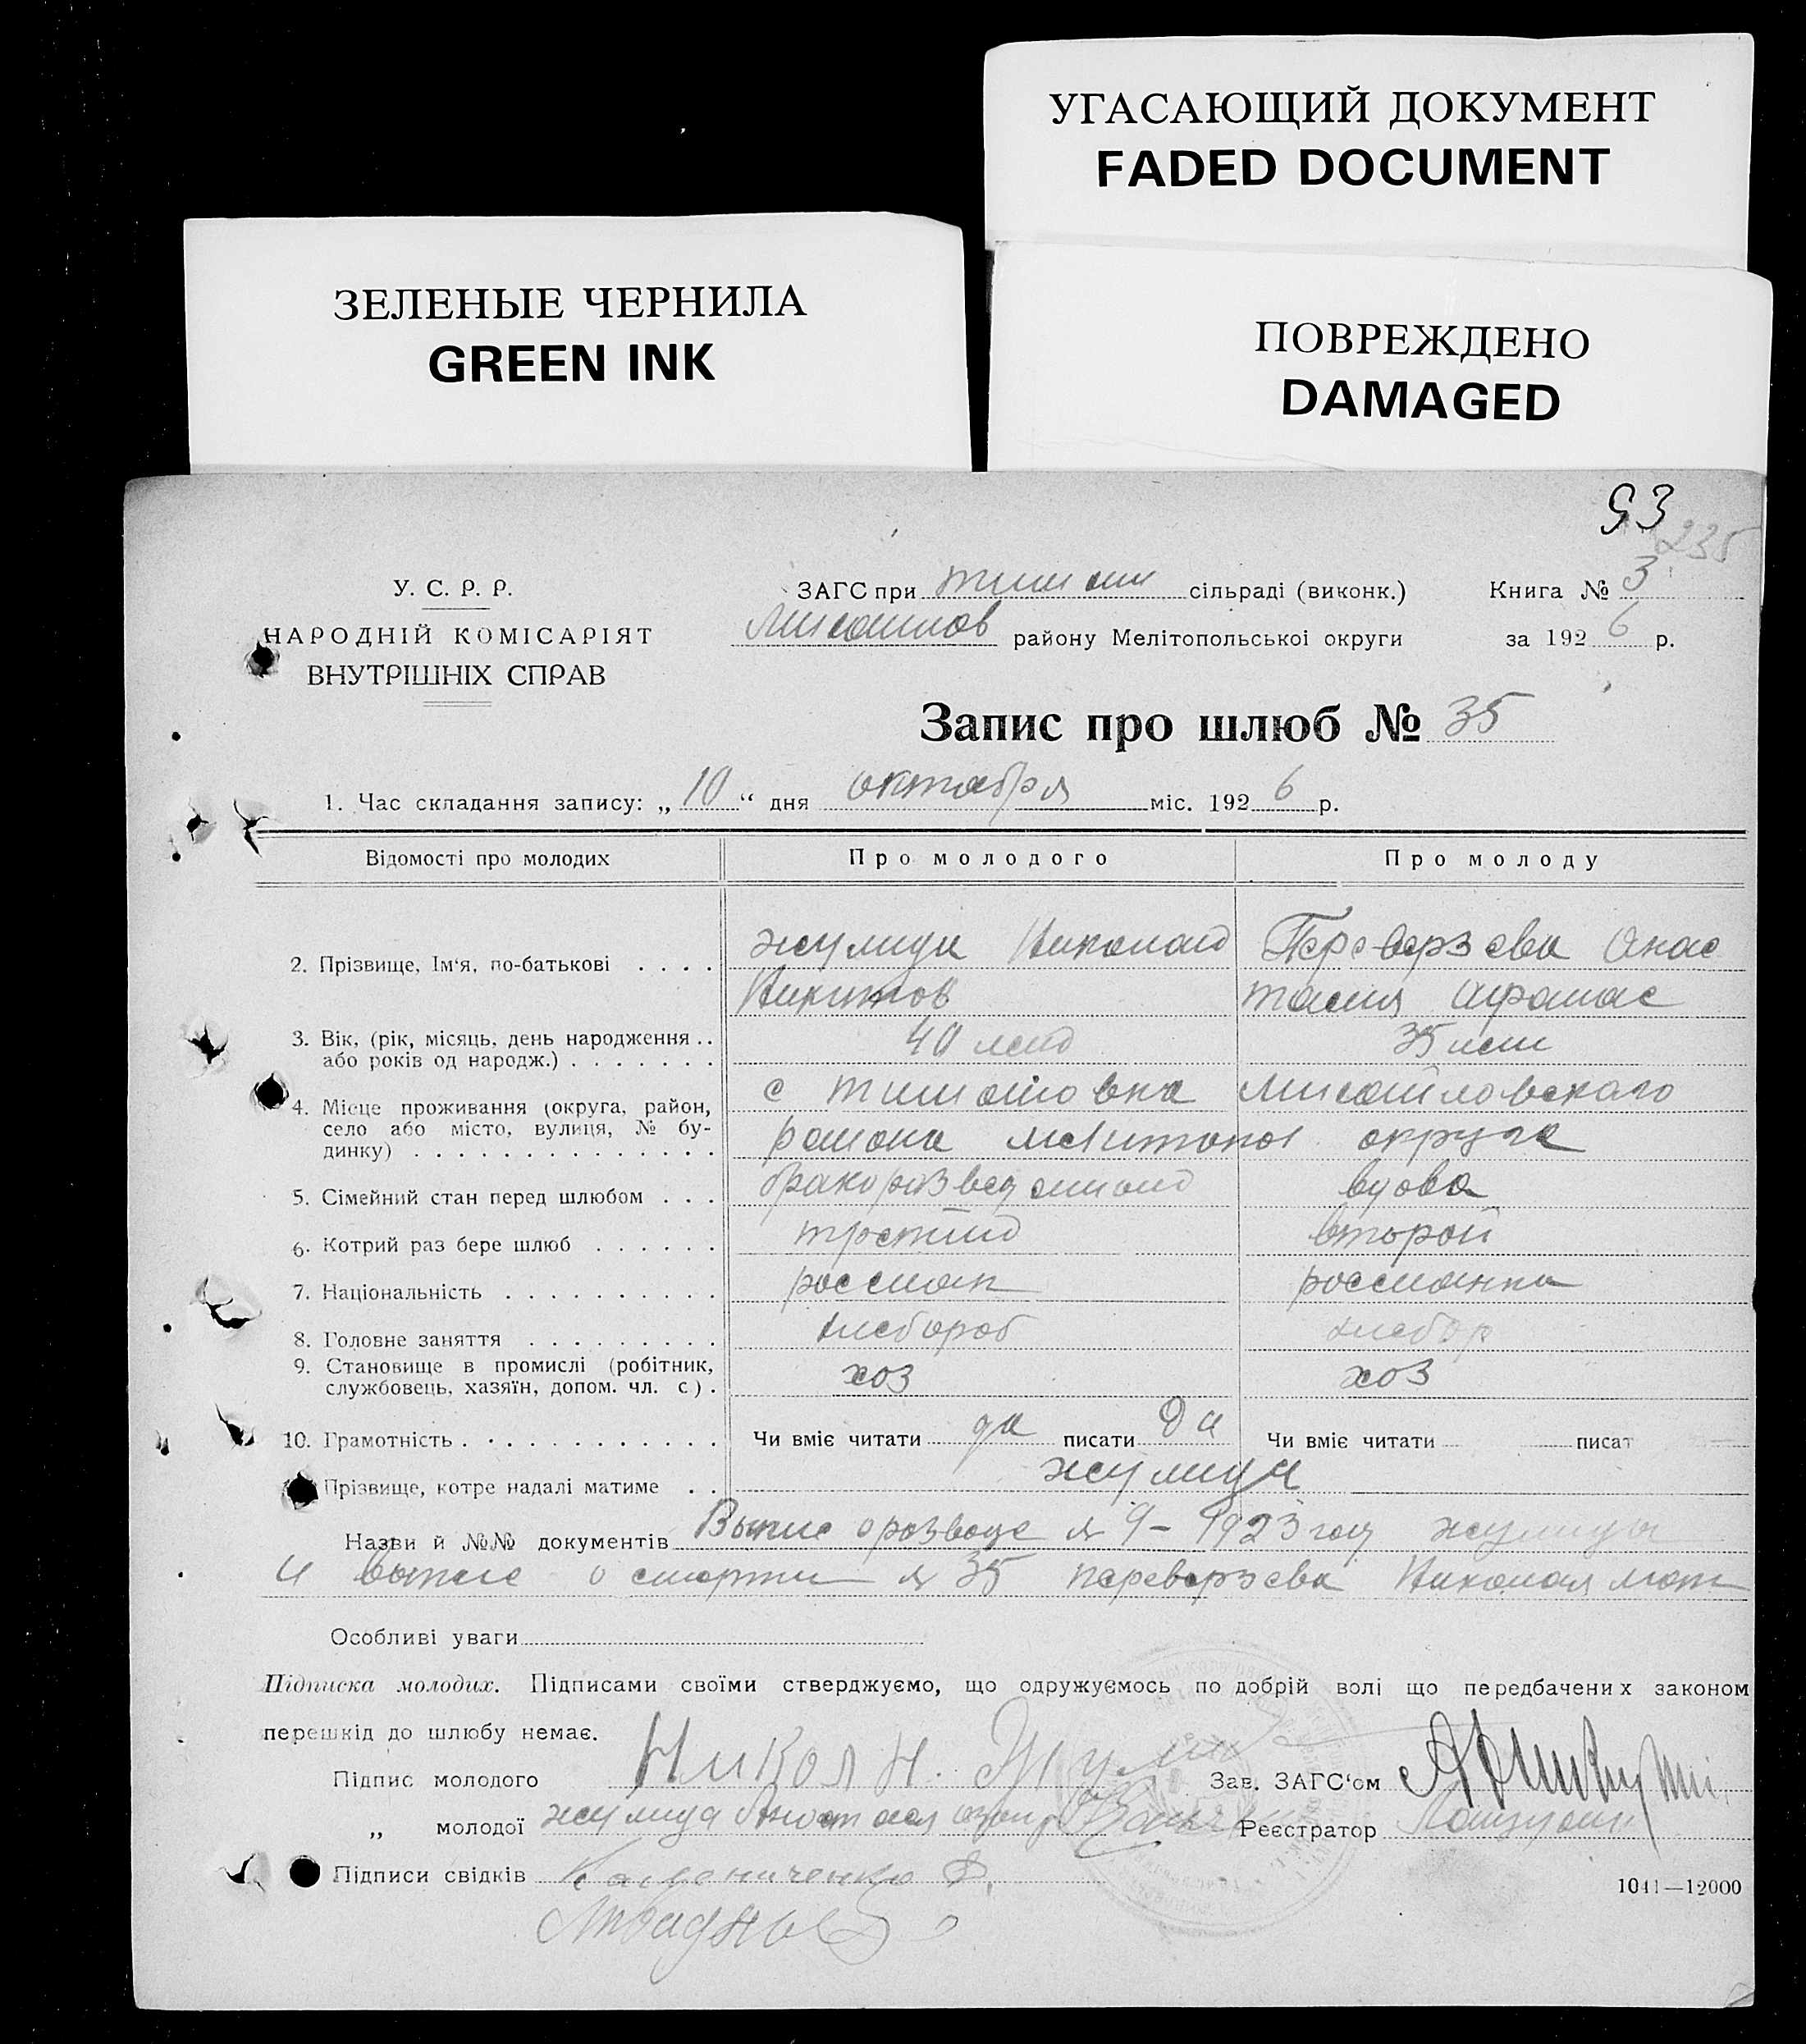 УГАСАЮЩИЙ ДОКУМЕНТ
FADED DOCUMENT
ЗЕЛЕНЫЕ ЧЕРНИЛА
GREEN INK
ПОВРЕЖДЕНО
DAMAGED
93
235
У. С. Р. Р.
НАРОДНІЙ КОМІСАРІЯТ
ВНУТРІШНІХ СПРАВ
ЗАГС при тимош сільраді (виконк.)
Михайлов району Мелітопольської округи
Книга № 3
за 1926 р.
Запис про шлюб № 35
1. Час складання запису: „10“ дня октября міс. 1926 р.
Відомості про молодих Про молодого Про молоду
2. Прізвище, Ім‘я, по-батькові . . . . жулида Николай Переверзева Анас
Никитов тасия Афанас
3. Вік, (рік, місяць, день народження . . 40 лет 35 лет
або років од народж.) . . . . . . .
4. Місце проживання (округа, район, с тимошовка Михайловского
село або місто, вулиця, № бу- района мелитопол округа
динку) . . . . . . . . . . . . . .
5. Сімейний стан перед шлюбом . . . бракоразведенный вдова
6. Котрий раз бере шлюб . . . . . . третий второй
7. Національність . . . . . . . . . . россиан россианка
8. Головне заняття . . . . . . . . . хлебороб хлебор
9. Становище в промислі (робітник, хоз хоз
службовець, хазяїн, допом. чл. с) .
10. Грамотність . . . . . . . . . . . . Чи вміє читати да писати да Чи вміє читати писат
Прізвище, котре надалі матиме . . жулида
Назви й №№ документів Выпис о розводе № 9 – 1923 году жулиды
и выписе о смерти № 35 переверзева Николая
Особливі уваги
Підписка молодих. Підписами своїми стверджуємо, що одружуємось по добрій волі що передбачених законом
перешкід до шлюбу немає.
Підпис молодого Никола Н. Жули Зав. ЗАГС‘ом
„ молодої жулида Анастасия Реєстратор
Підписи свідків Ф.
1041—12000